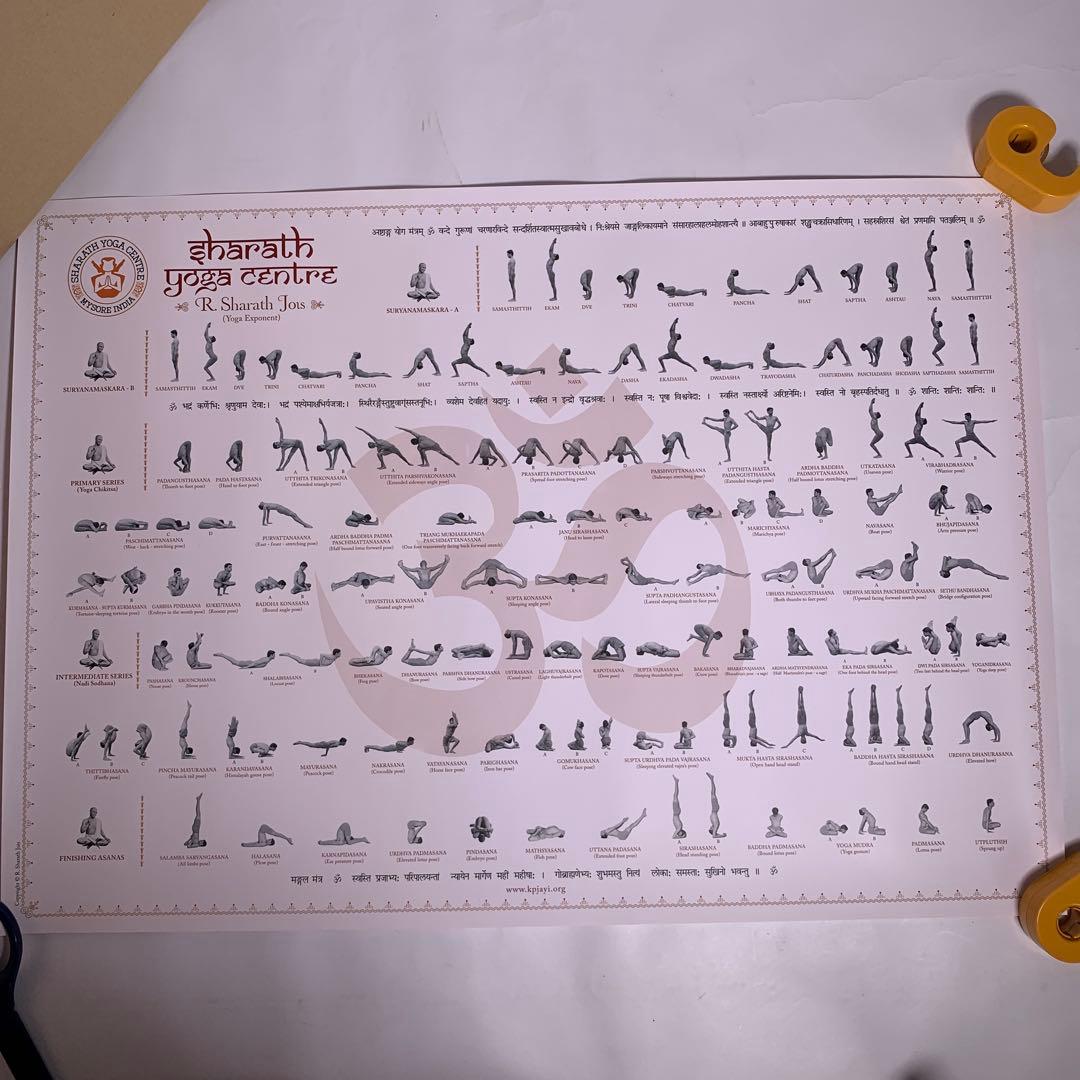 SHARATH YOGA CENTRE
MYSORE INDIA
sharath
yoga centre
R. Sharath Jois
(Yoga Exponent)
अष्टाङ्ग योग मंत्रम् ॐ वन्दे गुरूणां चरणारविन्दे सन्दर्शितस्वात्मसुखावबोधे । निःश्रेयसे जाङ्गलिकायमाने संसारहालाहलमोहशान्त्यै ॥ आबाहुपुरुषाकारं शङ्खचक्रासिधारिणम् । सहस्रशिरसं श्वेतं प्रणमामि पतञ्जलिम् ॥ ॐ
SURYANAMASKARA - A
SAMASTHITTIH EKAM DVE TRINI CHATVARI PANCHA SHAT SAPTHA ASHTAU NAVA SAMASTHITTIH
SURYANAMASKARA - B
SAMASTHITTIH EKAM DVE TRINI CHATVARI PANCHA SHAT SAPTHA ASHTAU NAVA DASHA EKADASHA DWADASHA TRAYODASHA CHATURDASHA PANCHADASHA SHODASHA SAPTHADASHA SAMASTHITTIH
ॐ भद्रं कर्णेभिः श्रृणुयाम देवाः । भद्रं पश्येमाक्षभिर्यजत्राः । स्थिरैरङ्गैस्तुष्टुवाग्ंसस्तनूभिः । व्यशेम देवहितं यदायुः । स्वस्ति न इन्द्रो वृद्धश्रवाः । स्वस्ति नः पूषा विश्ववेदाः । स्वस्ति नस्तार्क्ष्यो अरिष्टनेमिः । स्वस्ति नो बृहस्पतिर्दधातु ॥ ॐ शान्तिः शान्तिः शान्तिः ॥
PRIMARY SERIES
(Yoga Chikitsa)
PADANGUSTHASANA
(Thumb to foot pose)
PADA HASTASANA
(Hand to foot pose)
A B
UTTHITA TRIKONASANA
(Extended triangle pose)
A B
UTTHITA PARSHVAKONASANA
(Extended sideways angle pose)
A B C D
PRASARITA PADOTTANASANA
(Spread foot stretching pose)
PARSHVOTTANASANA
(Sideways stretching pose)
A B
UTTHITA HASTA
PADANGUSTHASANA
(Extended triangle pose)
ARDHA BADDHA
PADMOTTANASANA
(Half bound lotus stretching pose)
UTKATASANA
(Uneven pose)
A B
VIRABHADRASANA
(Warrior pose)
A B C D
PASCHIMATTANASANA
(West - back - stretching pose)
PURVATTANASANA
(East - front - stretching pose)
ARDHA BADDHA PADMA
PASCHIMATTANASANA
(Half bound lotus forward pose)
TRIANG MUKHAEKAPADA
PASCHIMATTANASANA
(One foot transversely facing back forward stretch)
A B C
JANU SIRASHASANA
(Head to knee pose)
A B C D
MARICHTASANA
(Marichya pose)
NAVASANA
(Boat pose)
A B
BHUJAPIDASANA
(Arm pressure pose)
KURMASANA - SUPTA KURMASANA
(Tortoise-sleeping tortoise pose)
GARBHA PINDASANA
(Embryo in the womb pose)
KUKKUTASANA
(Rooster pose)
A B
BADDHA KONASANA
(Bound angle pose)
A B
UPAVISTHA KONASANA
(Seated angle pose)
SUPTA KONASANA
(Sleeping angle pose)
SUPTA PADHANGUSTHASANA
(Lateral sleeping thumb to foot pose)
UBHAYA PADANGUSTHASANA
(Both thumbs to feet pose)
URDHVA MUKHA PASCHIMATTANASANA
(Upward facing forward stretch pose)
SETHU BANDHASANA
(Bridge configuration pose)
INTERMEDIATE SERIES
(Nadi Sodhana)
PASHASANA
(Noose pose)
KROUNCHASANA
(Heron pose)
A B
SHALABHASANA
(Locust pose)
BHEKASANA
(Frog pose)
DHANURASANA
(Bow pose)
PARSHVA DHANURASANA
(Side bow pose)
USTRASANA
(Camel pose)
LAGHUVAJRASANA
(Light thunderbolt pose)
KAPOTASANA
(Dove pose)
SUPTA VAJRASANA
(Sleeping thunderbolt pose)
BAKASANA
(Crane pose)
BHARADVAJASANA
(Bharadvaja pose - a sage)
ARDHA MATSYENDRASANA
(Half Matsyendra's pose - a sage)
A B
EKA PADA SIRSASANA
(One foot behind the head pose)
A B
DWI PADA SIRSASANA
(Two feet behind the head pose)
YOGANIDRASANA
(Yoga sleep pose)
A B C
THITTIBHASANA
(Firefly pose)
PINCHA MAYURASANA
(Peacock tail pose)
A B
KARANDAVASANA
(Himalayah goose pose)
MAYURASANA
(Peacock pose)
NAKRASANA
(Crocodile pose)
VATAYANASANA
(Horse face pose)
PARIGHASANA
(Iron bar pose)
A B C
GOMUKHASANA
(Cow face pose)
A B
SUPTA URDHVA PADA VAJRASANA
(Sleeping elevated vajra's pose)
A B C
MUKTA HASTA SIRASHASANA
(Open hand head stand)
A B C D
BADDHA HASTA SIRASHASANA
(Bound hand head stand)
URDHVA DHANURASANA
(Elevated bow)
FINISHING ASANAS
SALAMBA SARVANGASANA
(All limbs pose)
HALASANA
(Plow pose)
KARNAPIDASANA
(Ear pressure pose)
URDHVA PADMASANA
(Elevated lotus pose)
PINDASANA
(Embryo pose)
MATHSYASANA
(Fish pose)
UTTANA PADASANA
(Extended foot pose)
A B
SIRASHASANA
(Head standing pose)
BADDHA PADMASANA
(Bound lotus pose)
A B
YOGA MUDRA
(Yoga gesture)
PADMASANA
(Lotus pose)
UTPLUTHIH
(Sprung up)
मङ्गल मंत्र ॐ स्वस्ति प्रजाभ्यः परिपालयन्तां न्यायेन मार्गेण महीं महीशाः । गोब्राह्मणेभ्यः शुभमस्तु नित्यं लोकाः समस्ताः सुखिनो भवन्तु ॥ ॐ
www.kpjayi.org
Copyright © R. Sharath Jois